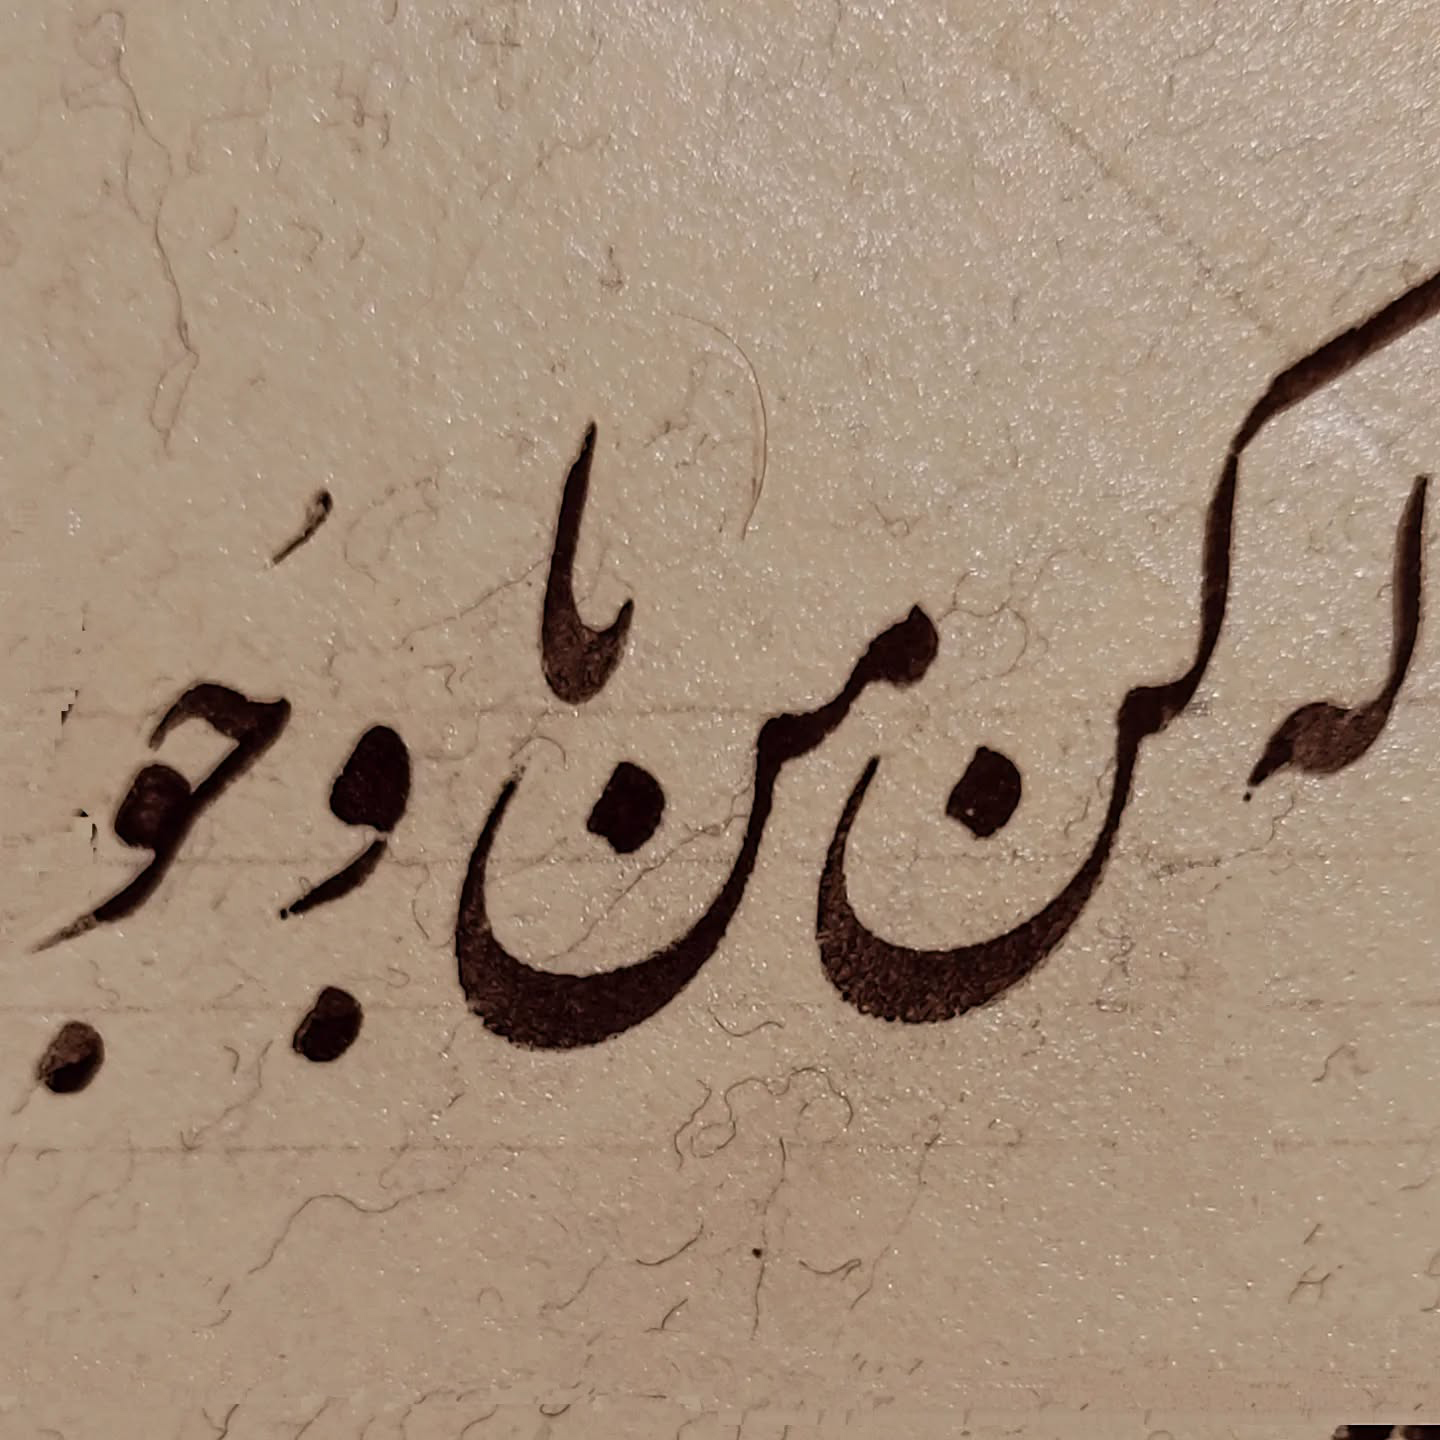 له کن من با وُجو